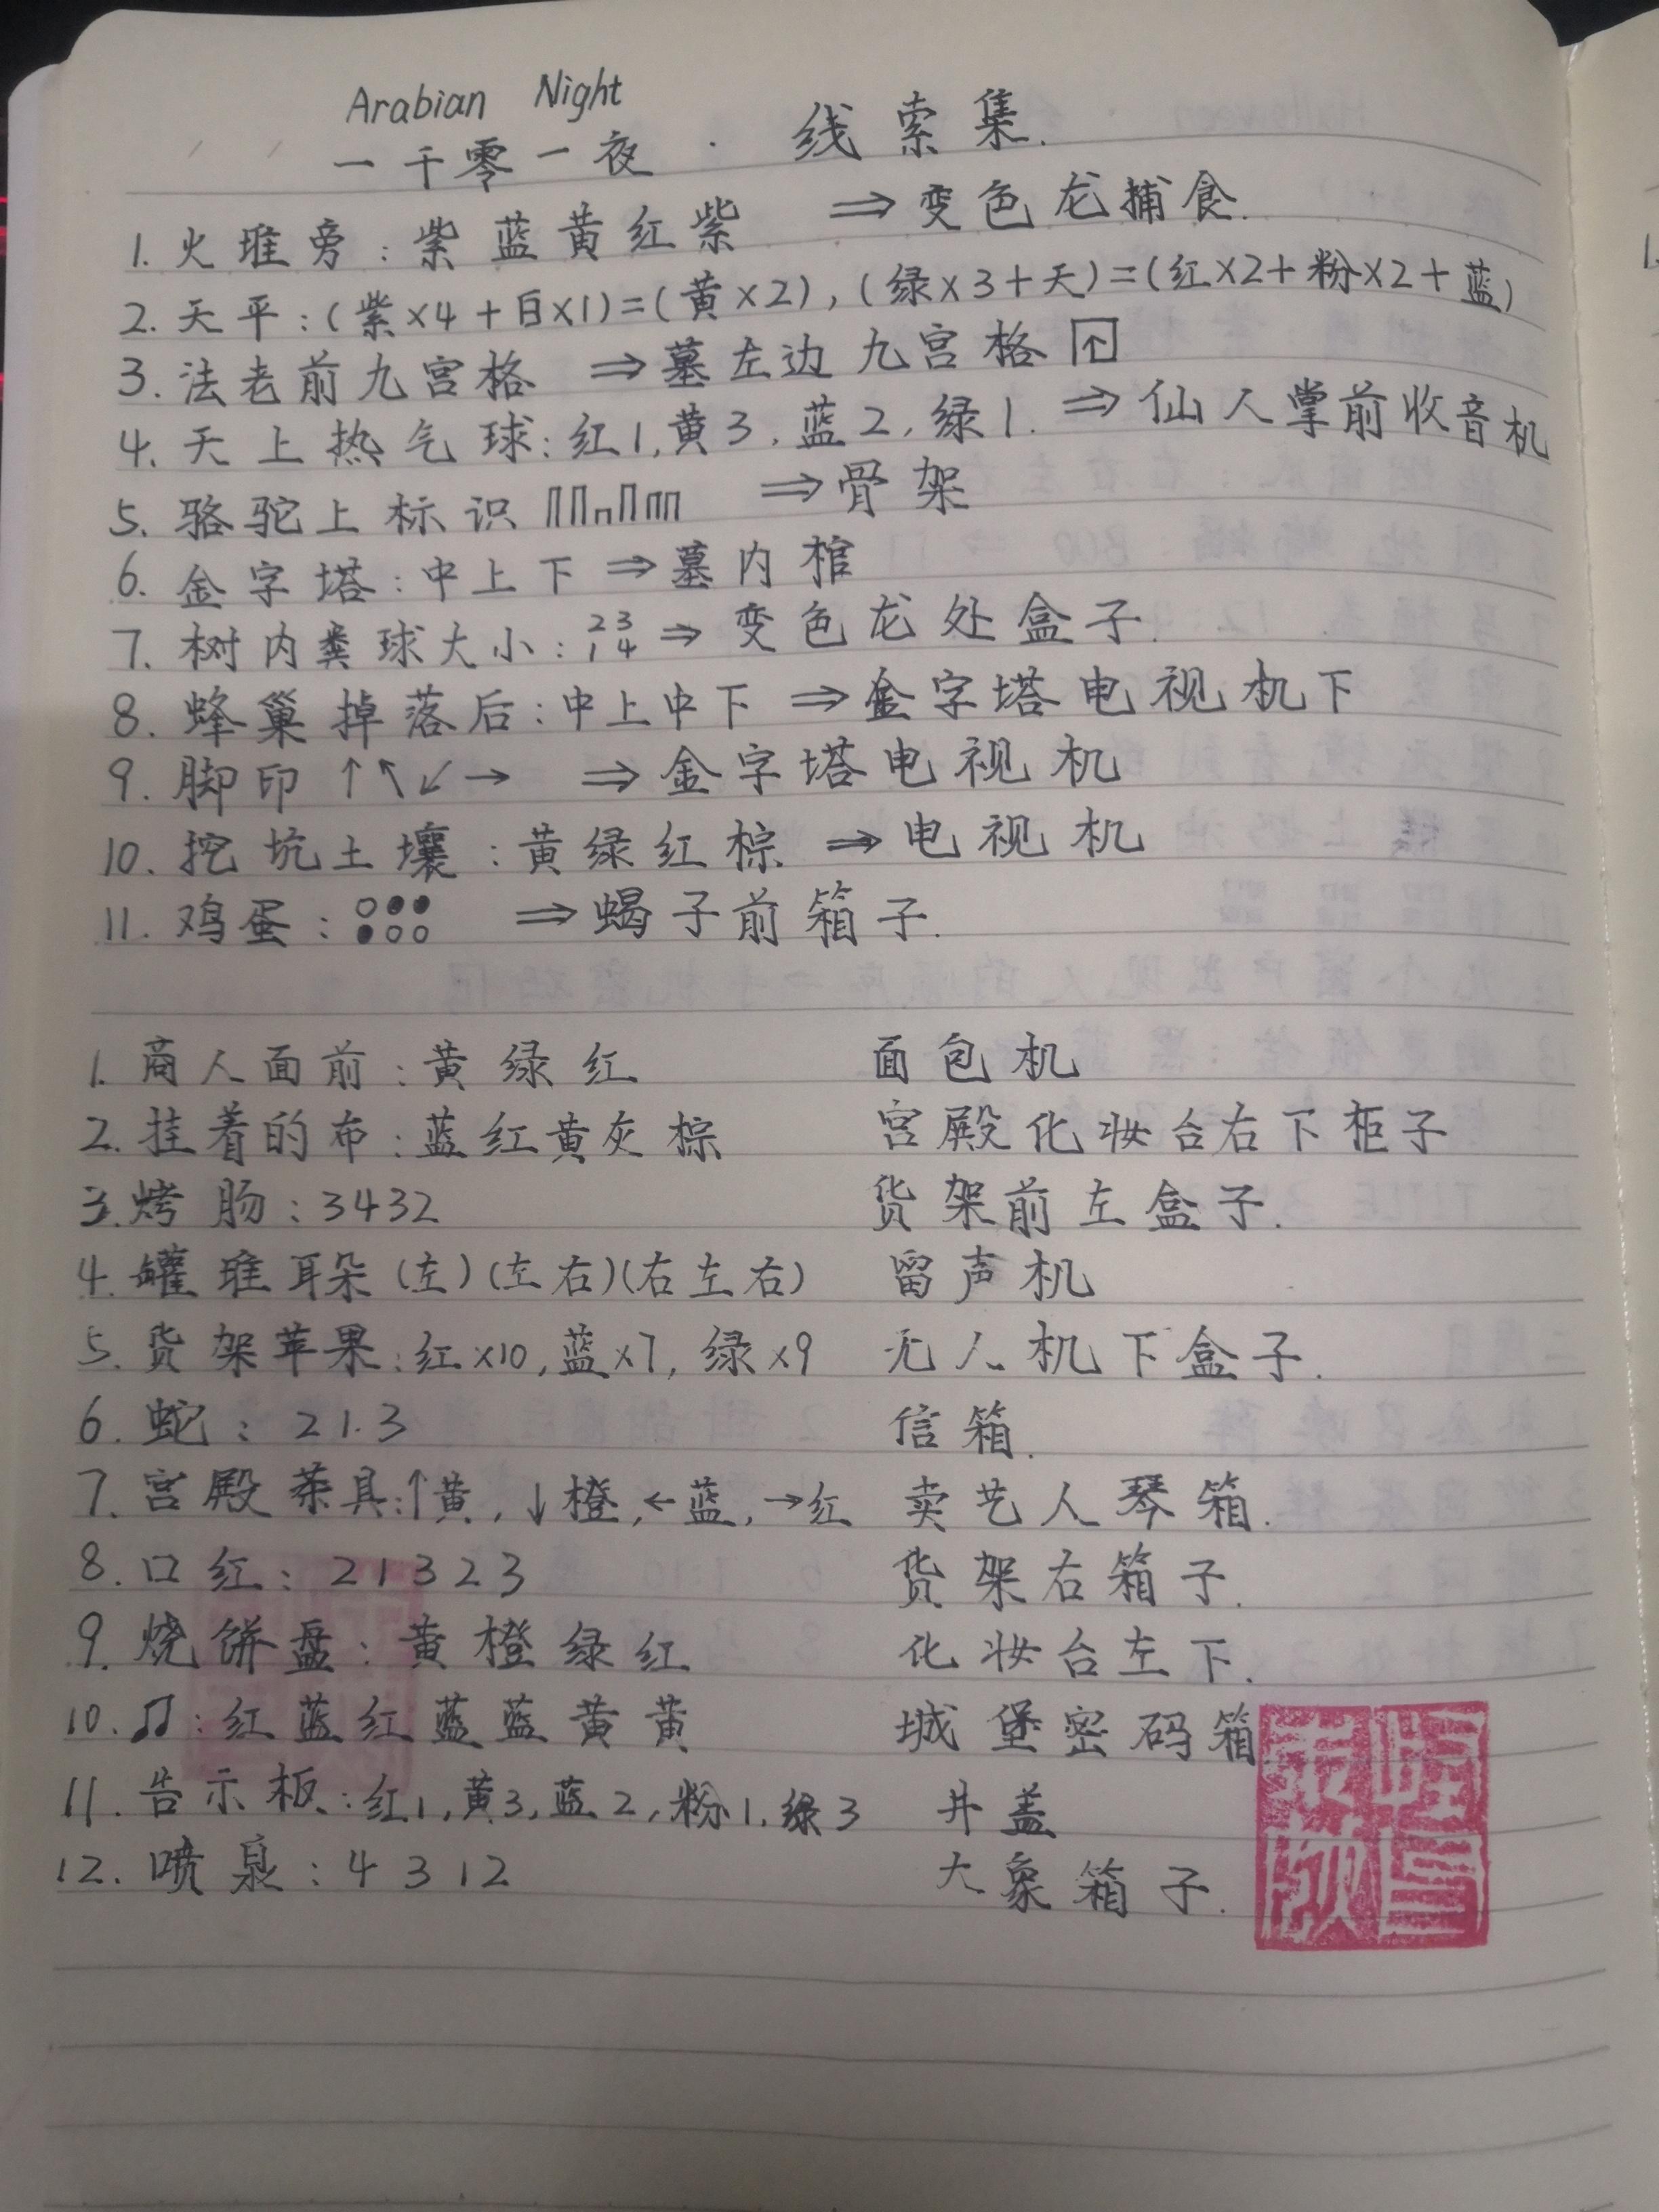 Arabian Night
一千零一夜 · 线索集.
1. 火堆旁：紫蓝黄红紫 ⇒ 变色龙捕食.
2. 天平：(紫×4+白×1)=(黄×2),(绿×3+天)=(红×2+粉×2+蓝)
3. 法老前九宫格 ⇒ 墓左边九宫格
4. 天上热气球：红1,黄3,蓝2,绿1. ⇒ 仙人掌前收音机
5. 骆驼上标识 ⇒ 骨架
6. 金字塔：中上下 ⇒ 墓内棺
7. 树内粪球大小：23 14 ⇒ 变色龙处盒子.
8. 蜂巢掉落后：中上中下 ⇒ 金字塔电视机下
9. 脚印 ↑↖↙→ ⇒ 金字塔电视机
10. 挖坑土壤：黄绿红棕 ⇒ 电视机
11. 鸡蛋：○●● ●○○ ⇒ 蝎子前箱子.
1. 商人面前：黄绿红 面包机
2. 挂着的布：蓝红黄灰棕 宫殿化妆台右下柜子
3. 烤肠：3432 货架前左盒子.
4. 罐堆耳朵(左)(左右)(右左右) 留声机
5. 货架苹果：红×10,蓝×7,绿×9 无人机下盒子.
6. 蛇：21.3 信箱.
7. 宫殿茶具：↑黄,↓橙,←蓝,→红 卖艺人琴箱.
8. 口红：21323 货架右箱子.
9. 烧饼盘：黄橙绿红 化妆台左下.
10. ♫：红蓝红蓝蓝黄黄 城堡密码箱
11. 告示板：红1,黄3,蓝2,粉1.绿3 井盖
12. 喷泉：4312 大象箱子.